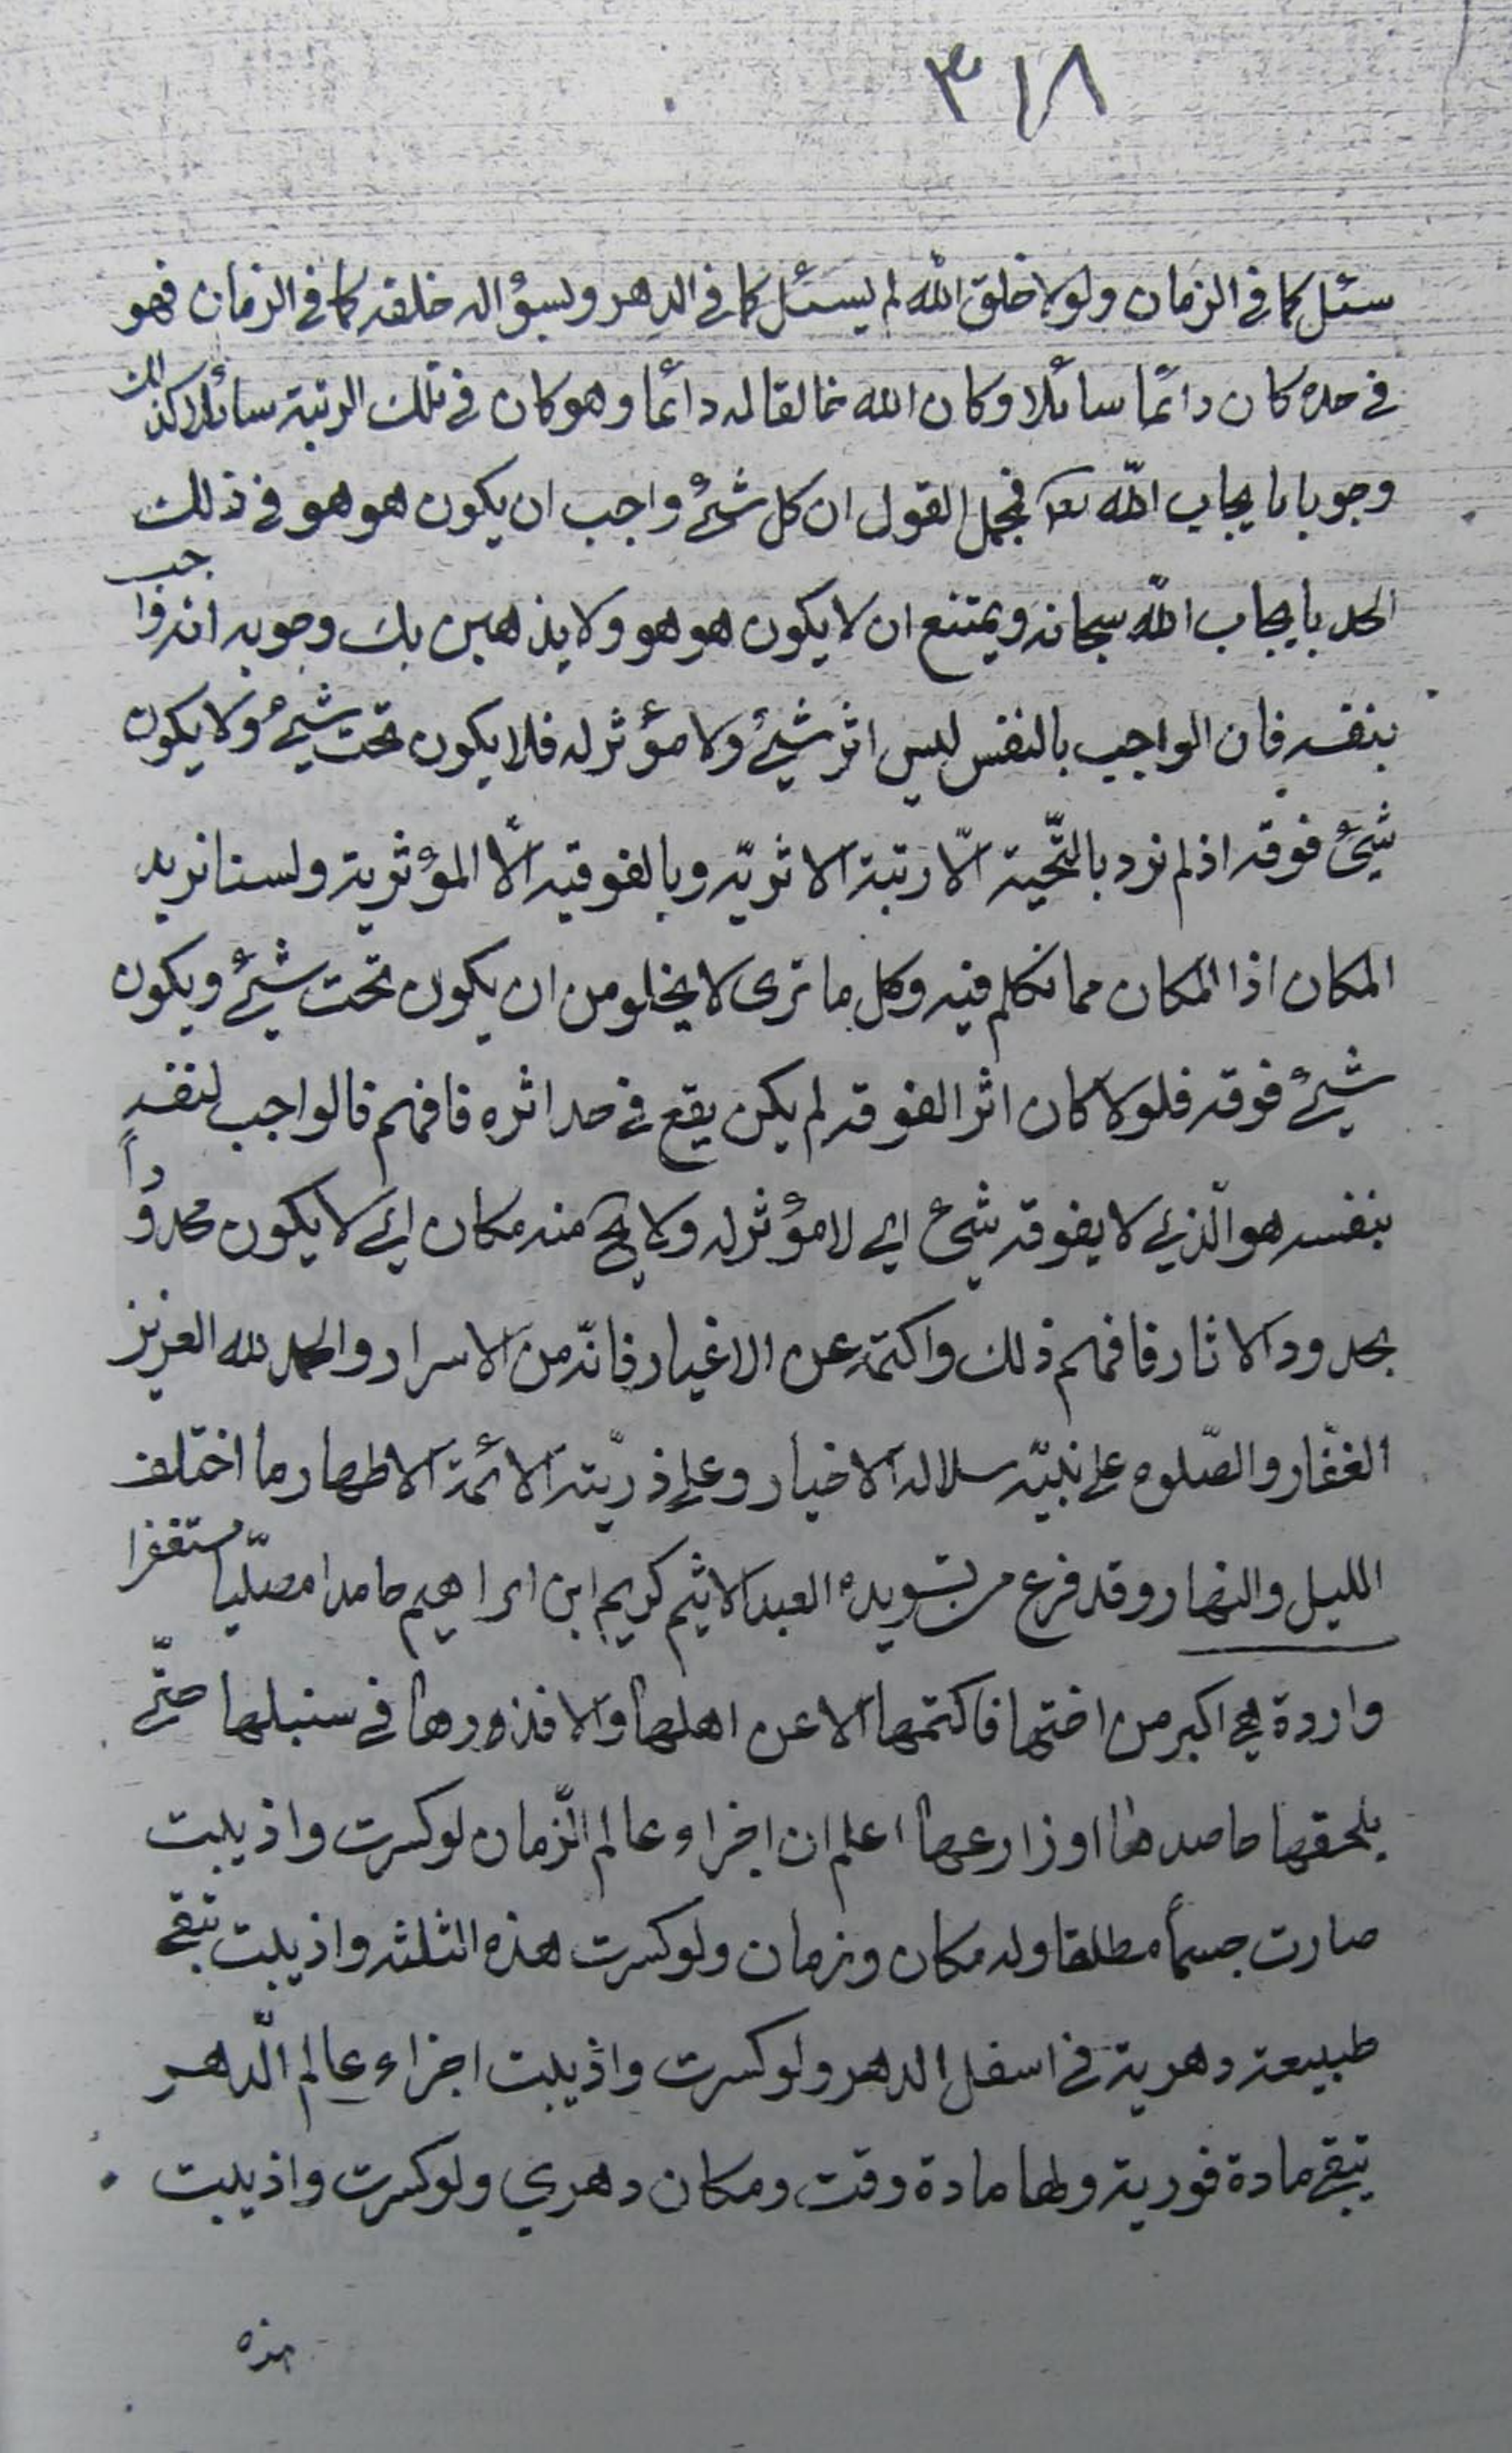 ٣١٨
سئل كما في الزمان ولولا خلق الله لم يسئل كما في الدهر ولسؤاله خلقه كما في الزمان فهو
في حده كان دائما سائلا وكان الله خالقا له دائما وهو كان في تلك الرتبة سائلا كذلك
وجوبا بايجاب الله تعا فمجمل القول ان كل شئ واجب ان يكون هو هو في ذلك
الحد بايجاب الله سبحانه ويمتنع ان لا يكون هو هو ولا يذهبن بك وجوبه انه واجب
بنفسه فان الواجب بالنفس ليس اثر شئ ولا مؤثر له فلا يكون تحت شئ ولا يكون
شئ فوقه اذ لم نرد بالتحتية الّا رتبة الاثريّه وبالفوقيه الّا المؤثرية ولسنا نريد
المكان اذا المكان مما نتكلم فيه وكل ما ترى لا يخلو من ان يكون تحت شئ ويكون
شئ فوقه فلولا كان اثر الفوقه لم يكن يقع في حد اثره فافهم فالواجب لنفسه
بنفسه هو الّذي لا يفوقه شئ اي لا مؤثر له ولا يخ منه مكان اي لا يكون محدودا
بحدود الاثار فافهم ذلك واكتمه عن الاغيار فانّه من الاسرار والحمد لله العزيز
الغفّار والصّلوه على نبيّه سلاله الاخيار وعلى ذريّته الائمة الاطهار ما اختلف
الليل والنهار وقد فرغ من تسويده العبد الاثيم كريم ابن ابراهيم حامدا مصلّيا مستغفرا
واردة هي اكبر من اختها فاكتمها الا عن اهلها والا فذروها في سنبلها حتّى
يلحقها حاصدها او زارعها اعلم ان اجزاء عالم الزّمان لو كسرت واذيبت
صارت جسماً مطلقا وله مكان وزمان ولو كسرت هذه الثلثه واذيبت تبقى
طبيعة دهرية في اسفل الدهر ولو كسرت واذيبت اجزاء عالم الدّهر
تبقى مادة فورية ولها مادة وقت ومكان دهري ولو كسرت واذيبت
هذه